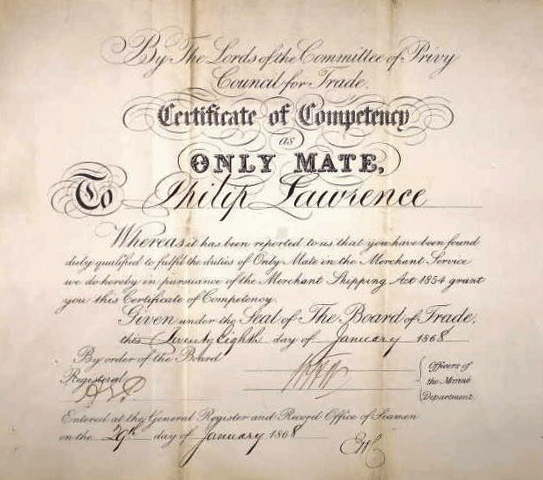 By The Lords of the Committee of Privy
Council for Trade.
Certificate of Competency
as
ONLY MATE,
To Philip Lawrence
Whereas it has been reported to us that you have been found
duly qualified to fulfil the duties of Only Mate in the Merchant Service
we do hereby in pursuance of the Merchant Shipping Act 1854 grant
you this Certificate of Competency.
Given under the Seal of The Board of Trade,
this Twenty Eighth day of January 1868
By order of the Board
Officers of
the Marine
Department.
Registered
Entered at the General Register and Record Office of Seamen
on the 29th day of January 1868